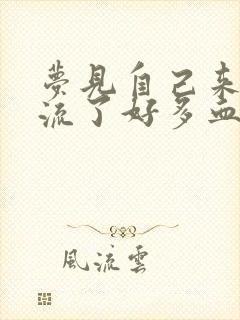 夢見自己来
流了好多血
風流雲